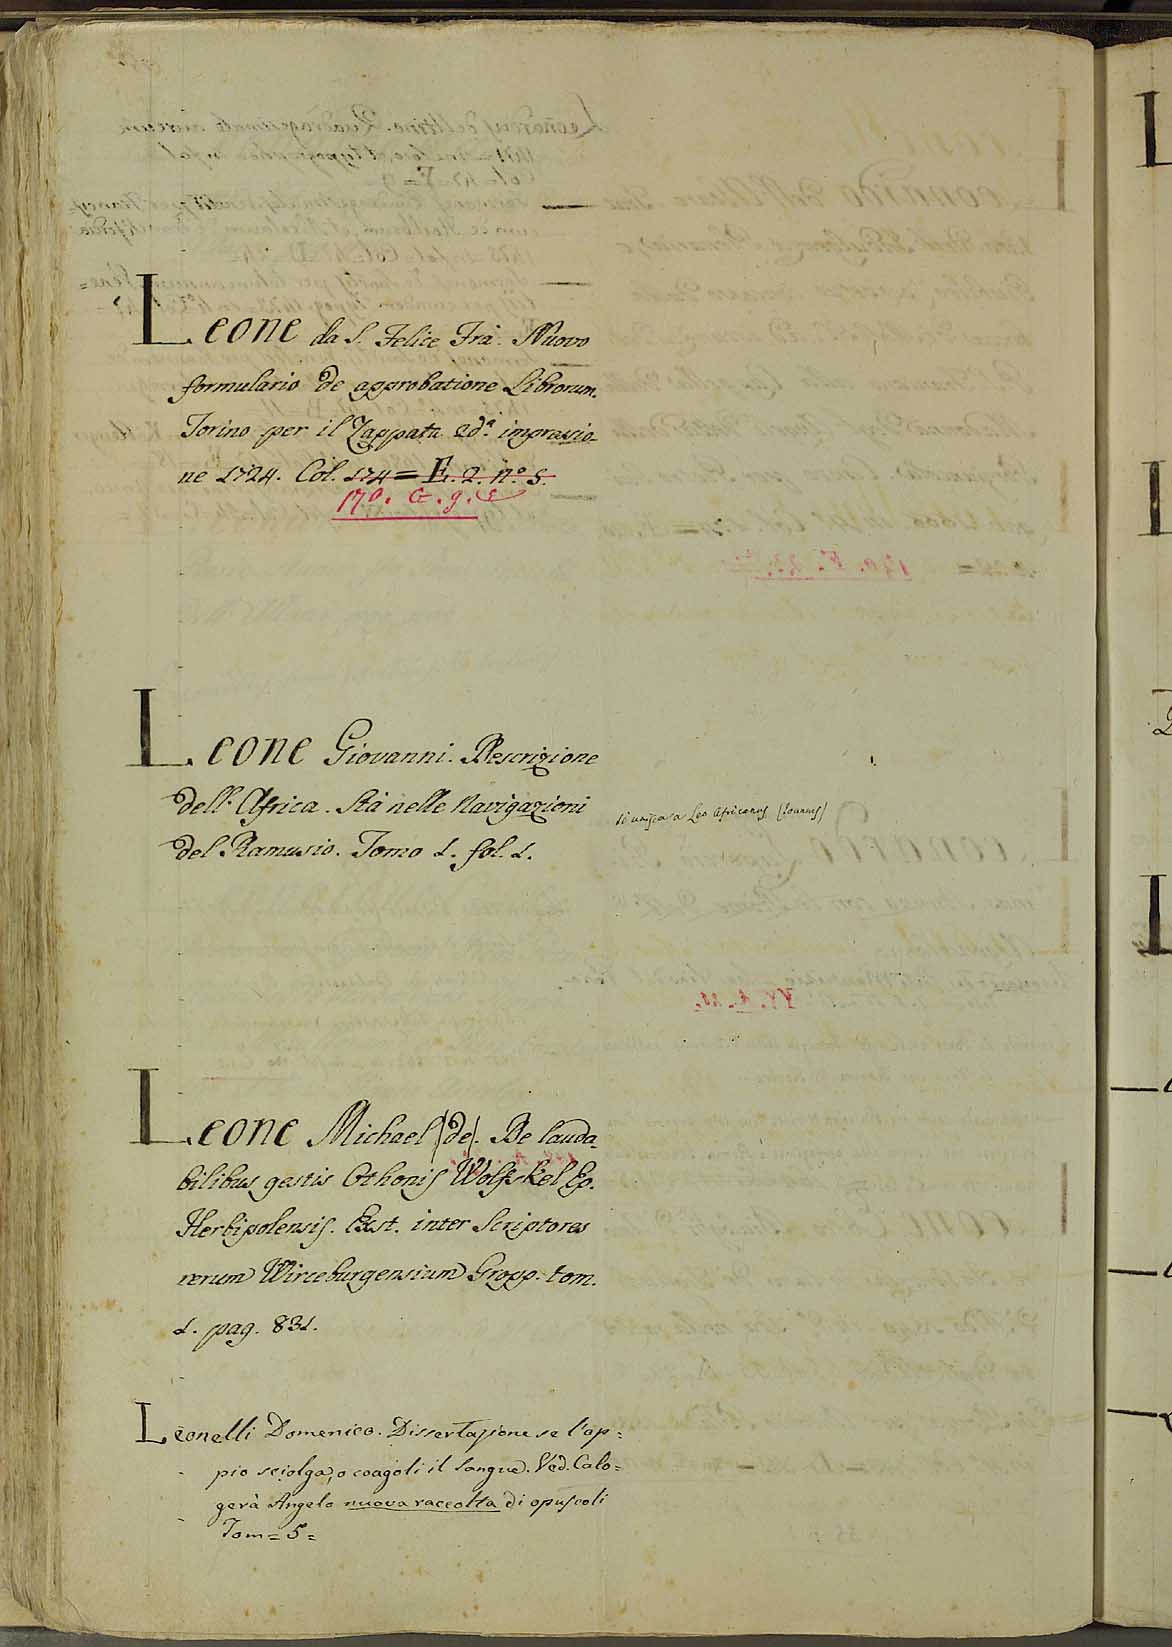 Leone da S. Felice Frà. Nuovo
formulario de approbatione Librorum.
Torino per il Zappata ed.ª impressio-
ne 1724. Col. 174 = E. 2. n.º 5.
170. G. 9.
Leone Giovanni. Descrizione
dell'Africa. Stà nelle Navigazioni
del Ramusio. Tomo 1. fol. 1.
si unisca a Leo Africanus (Joannes)
Leone Michael (de). De lauda-
bilibus gestis Othonis Wolfskel Ep.
Herbipolensis. Exst. inter Scriptores
rerum Wirceburgensium Gropp. tom.
1. pag. 831.
Leonelli Domenico. Dissertazione se l'op:
pio sciolga, o coagoli il sangue. Ved. Calo=
gerà Angelo nuova raccolta di opuscoli
Tom = 5 =